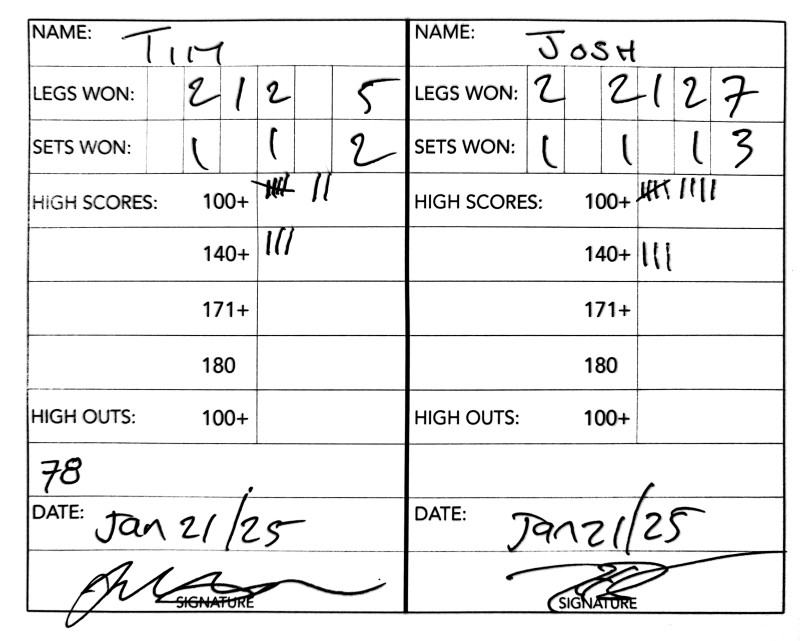 NAME: TIM
LEGS WON: 2 1 2 5
SETS WON: 1 1 2
HIGH SCORES: 100+ 卌 ||
140+ |||
171+
180
HIGH OUTS: 100+
78
DATE: Jan 21/25
SIGNATURE
NAME: JOSH
LEGS WON: 2 2 1 2 7
SETS WON: 1 1 1 3
HIGH SCORES: 100+ 卌 ||||
140+ |||
171+
180
HIGH OUTS: 100+
DATE: Jan 21/25
SIGNATURE